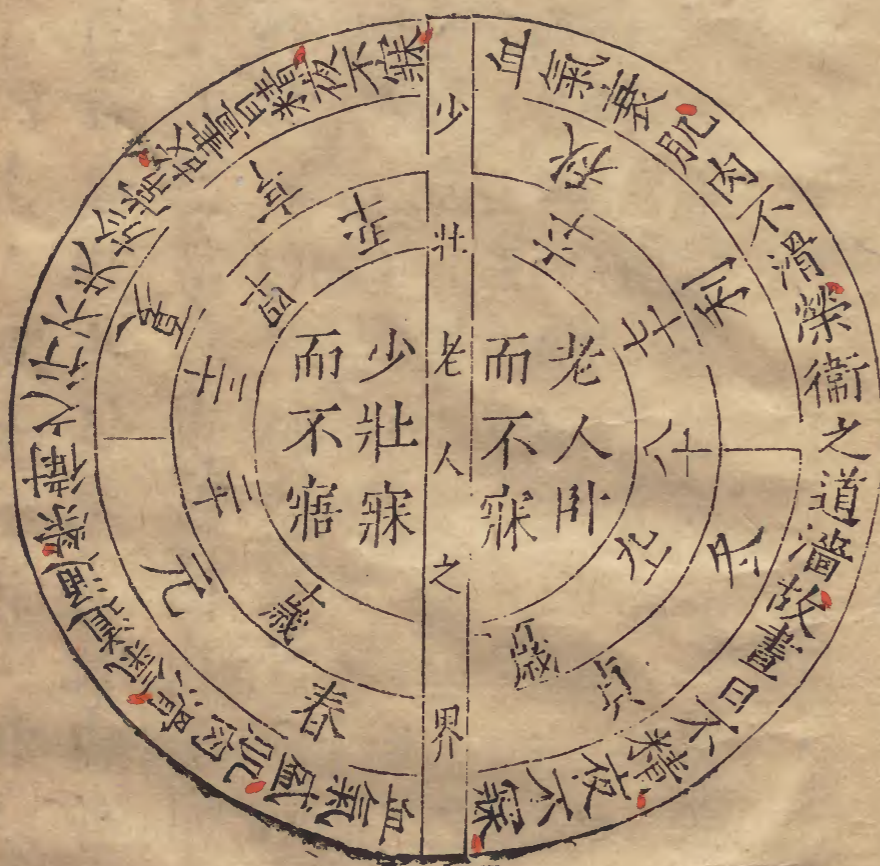 少壯老人之界
老人臥
而不寐
少壯寐
而不寤
血氣衰肌肉不滑榮衛之道濇故晝日不精夜不寐
血氣盛肌
榮衛之行不失於常故晝日精夜不寐
秋
利
冬
貞
春
元
夏
亨
六十
七十
八十
九十
歲
十歲
二十
三十
四十
五十